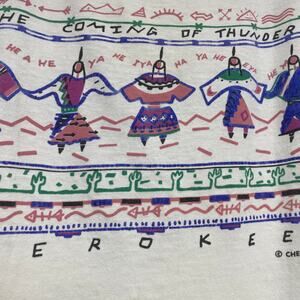 HE COMING OF THUNDER
HE A HE YA HE IYA HA YA HE EYA HE
© CHE
EROKEE